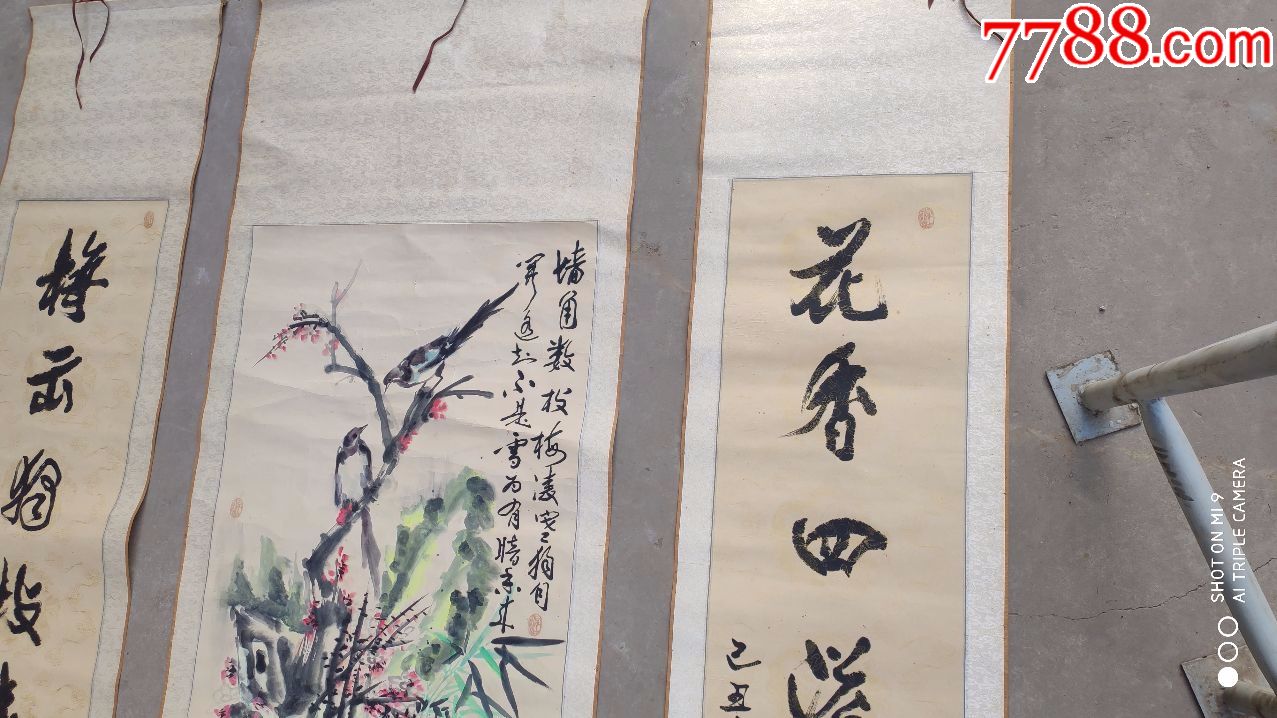 7788.com
花香四溢
己丑
墙角数枝梅凌寒独自
开遥知不是雪为有暗香来
梅
SHOT ON MI 9
AI TRIPLE CAMERA